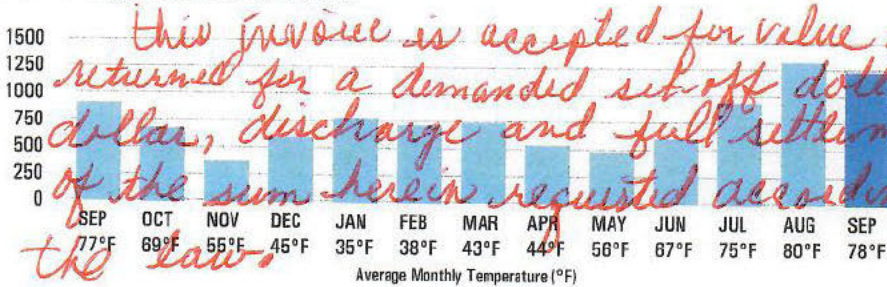 this invoice is accepted for value
returned for a demanded set-off doll
dollar, discharge and full settlem
of the sum herein requested accordi
the law.
1500
1250
1000
750
500
250
0
SEP OCT NOV DEC JAN FEB MAR APR MAY JUN JUL AUG SEP
77°F 69°F 55°F 45°F 35°F 38°F 43°F 44°F 56°F 67°F 75°F 80°F 78°F
Average Monthly Temperature (°F)